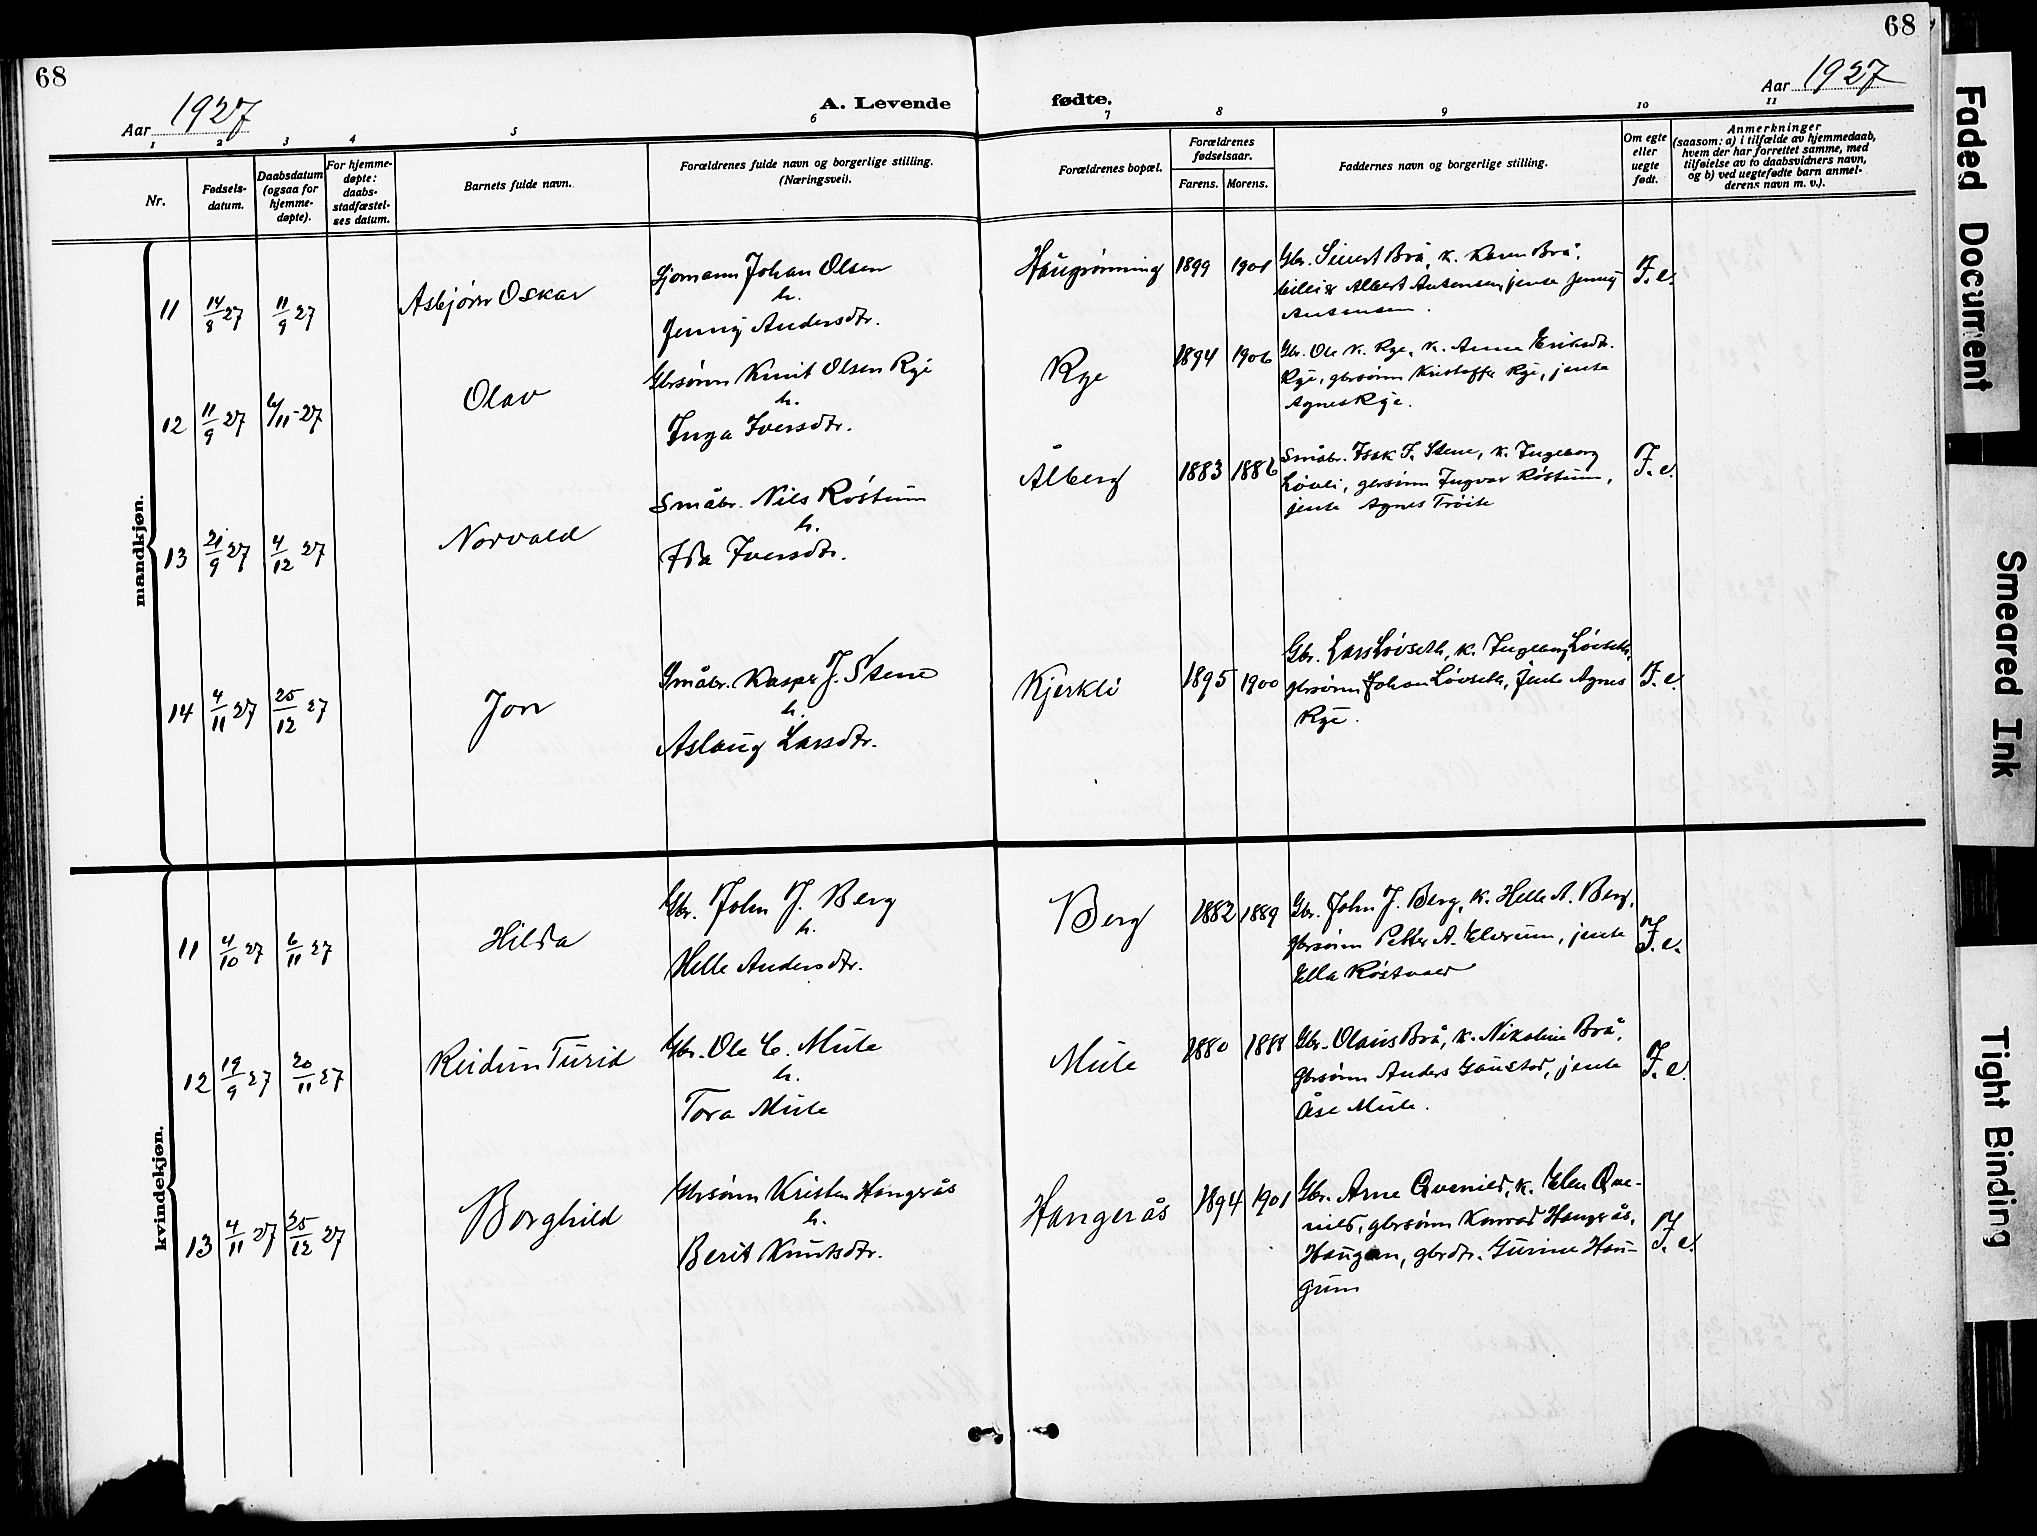 68
68
Aar 1927
A. Levende fødte.
Aar 1927
1 2 3 4 5 6 7 8 9 10 11
Nr.
Fødsels-
datum.
Daabsdatum
(ogsaa for
hjemme-
døpte).
For hjemme-
døpte:
daabs-
stadfæstel-
ses datum.
Barnets fulde navn.
Forældrenes fulde navn og borgerlige stilling.
(Næringsvei).
Forældrenes bopæl.
Forældrenes
fødselsaar.
Farens. Morens.
Faddernes navn og borgerlige stilling.
Om egte
eller
uegte
født.
Anmerkninger
(saasom: a) i tilfælde av hjemmedaab,
hvem der har forrettet samme, med
tilføielse av to daabsvidners navn,
og b) ved uegtefødte barn anmel-
derens navn m. v.).
mandkjøn.
11 14/8 27 11/9 27 Asbjørn Oskar
Sjømann Johan Olsen
h.
Jenny Andersdtr.
Haugrønning 1899 1901
Gbr. Sivert Brå, k. Karen Brå,
Albert Antonsen, jente Jenny
Antonsen.
F. e.
12 11/9 27 6/11-27 Olav
Gbrsønn Knut Olsen Rye
h.
Inga Iversdtr.
Rye 1894 1906
Gbr. Ole K. Rye, k. Anne Eriksdtr.
Rye, gbrsønn Kristoffer Rye, jente
Agnes Rye.
13 21/9 27 4/12 27 Norvald
Småbr. Nils Røstum
h.
Ida Iversdtr.
Ålberg 1883 1886
Småbr. Isak J. Stene, k. Ingeborg
Løvli, gbrsønn Ingvar Røstum,
jente Agnes Trøite
F. e.
14 4/11 27 25/12 27 Jon
Småbr. Kasper J. Stene
h.
Aslaug Larsdtr.
Kjerkli 1895 1900
Gbr. Lars Løvseth, k. Ingeborg Løvseth,
gbrsønn Johan Løvseth, jente Agnes
Rye.
F. e.
kvindekjøn.
11 4/10 27 6/11 27 Hilda
Gbr. John J. Berg
h.
Helle Andersdtr.
Berg 1882 1889
Gbr. John J. Berg, k. Helle A. Berg,
gbrsønn Petter A. Elverum, jente
Ella Røstvold
F. e.
12 19/9 27 20/11 27 Reidun Turid
Gbr. Ole C. Mule
h.
Tora Mule
Mule 1880 1888
Gbr. Olaus Brå, k. Nikoline Brå,
gbrsønn Anders Gaustad, jente
Åse Mule.
F. e.
13 4/11 27 25/12 27 Borghild
Gbrsønn Kristen Hangerås
h.
Berit Knutsdtr.
Hangerås 1894 1901
Gbr. Arne Qvenild, k. Elen Qve-
nild, gbrsønn Konrad Hangerås,
Haugan, gbrdtr. Gurine Hau-
gum
F. e.
Faded Document
Smeared Ink
Tight Binding